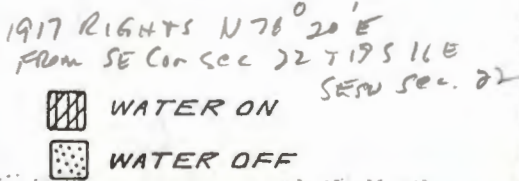 1917 RIGHTS N 78° 20' E
FROM SE Cor Sec 22 T 19 S 16 E
SESW Sec. 22
WATER ON
WATER OFF